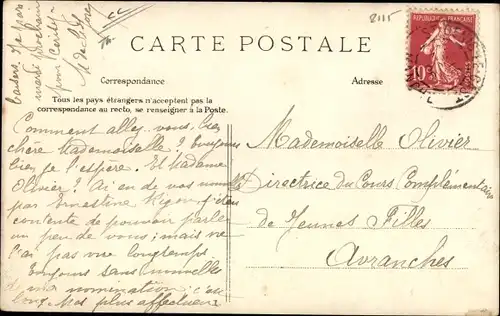 CARTE POSTALE
2115
REPUBLIQUE FRANÇAISE
10
Correspondance
Adresse
Tous les pays étrangers n'acceptent pas la
correspondance au recto, se renseigner à la Poste.
Comment allez vous bien
chère Mademoiselle ? toujours
bien je l'espère. Et Madame
Olivier ? J'ai eu de vos nouvelles
par Ernestine
contente de pouvoir parler
un peu de vous ; mais ne
l'ai pas vue longtemps
Toujours sans nouvelles
de ma nomination ; c'est
long. Mes plus affectueux
baisers. Je pars
mardi prochain
pour
Mademoiselle Olivier
Directrice du Cours Complémentaire
de Jeunes Filles
Avranches